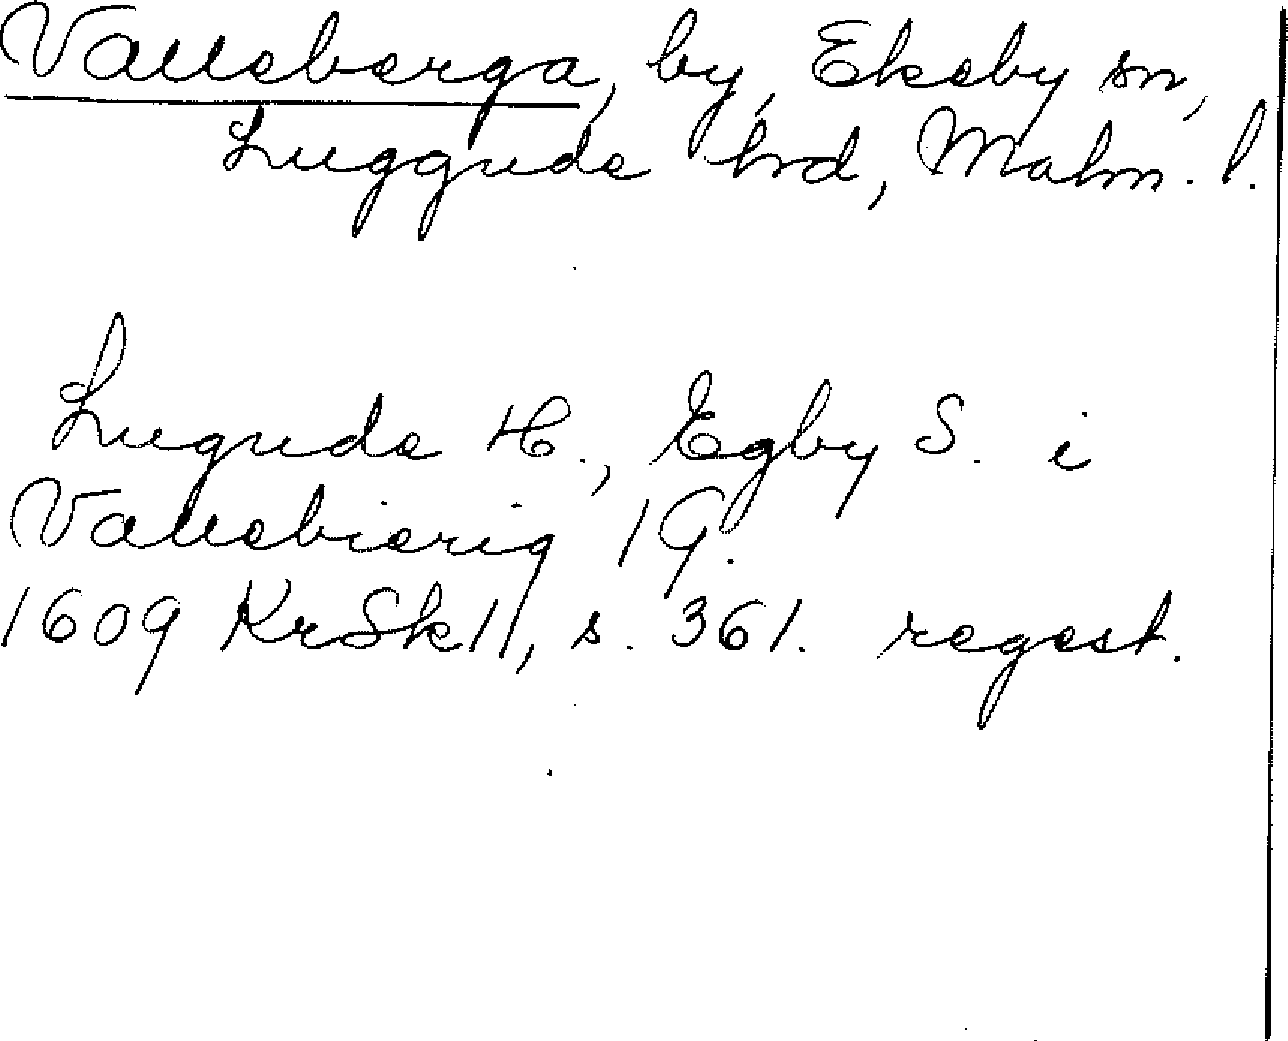 Valleberga, by, Ekeby sn,
Luggude hrd, Malm. l.
Lugude H., Egby S. i
Vallebierig 1 G.
1609 KrSkII, s. 361. regest.